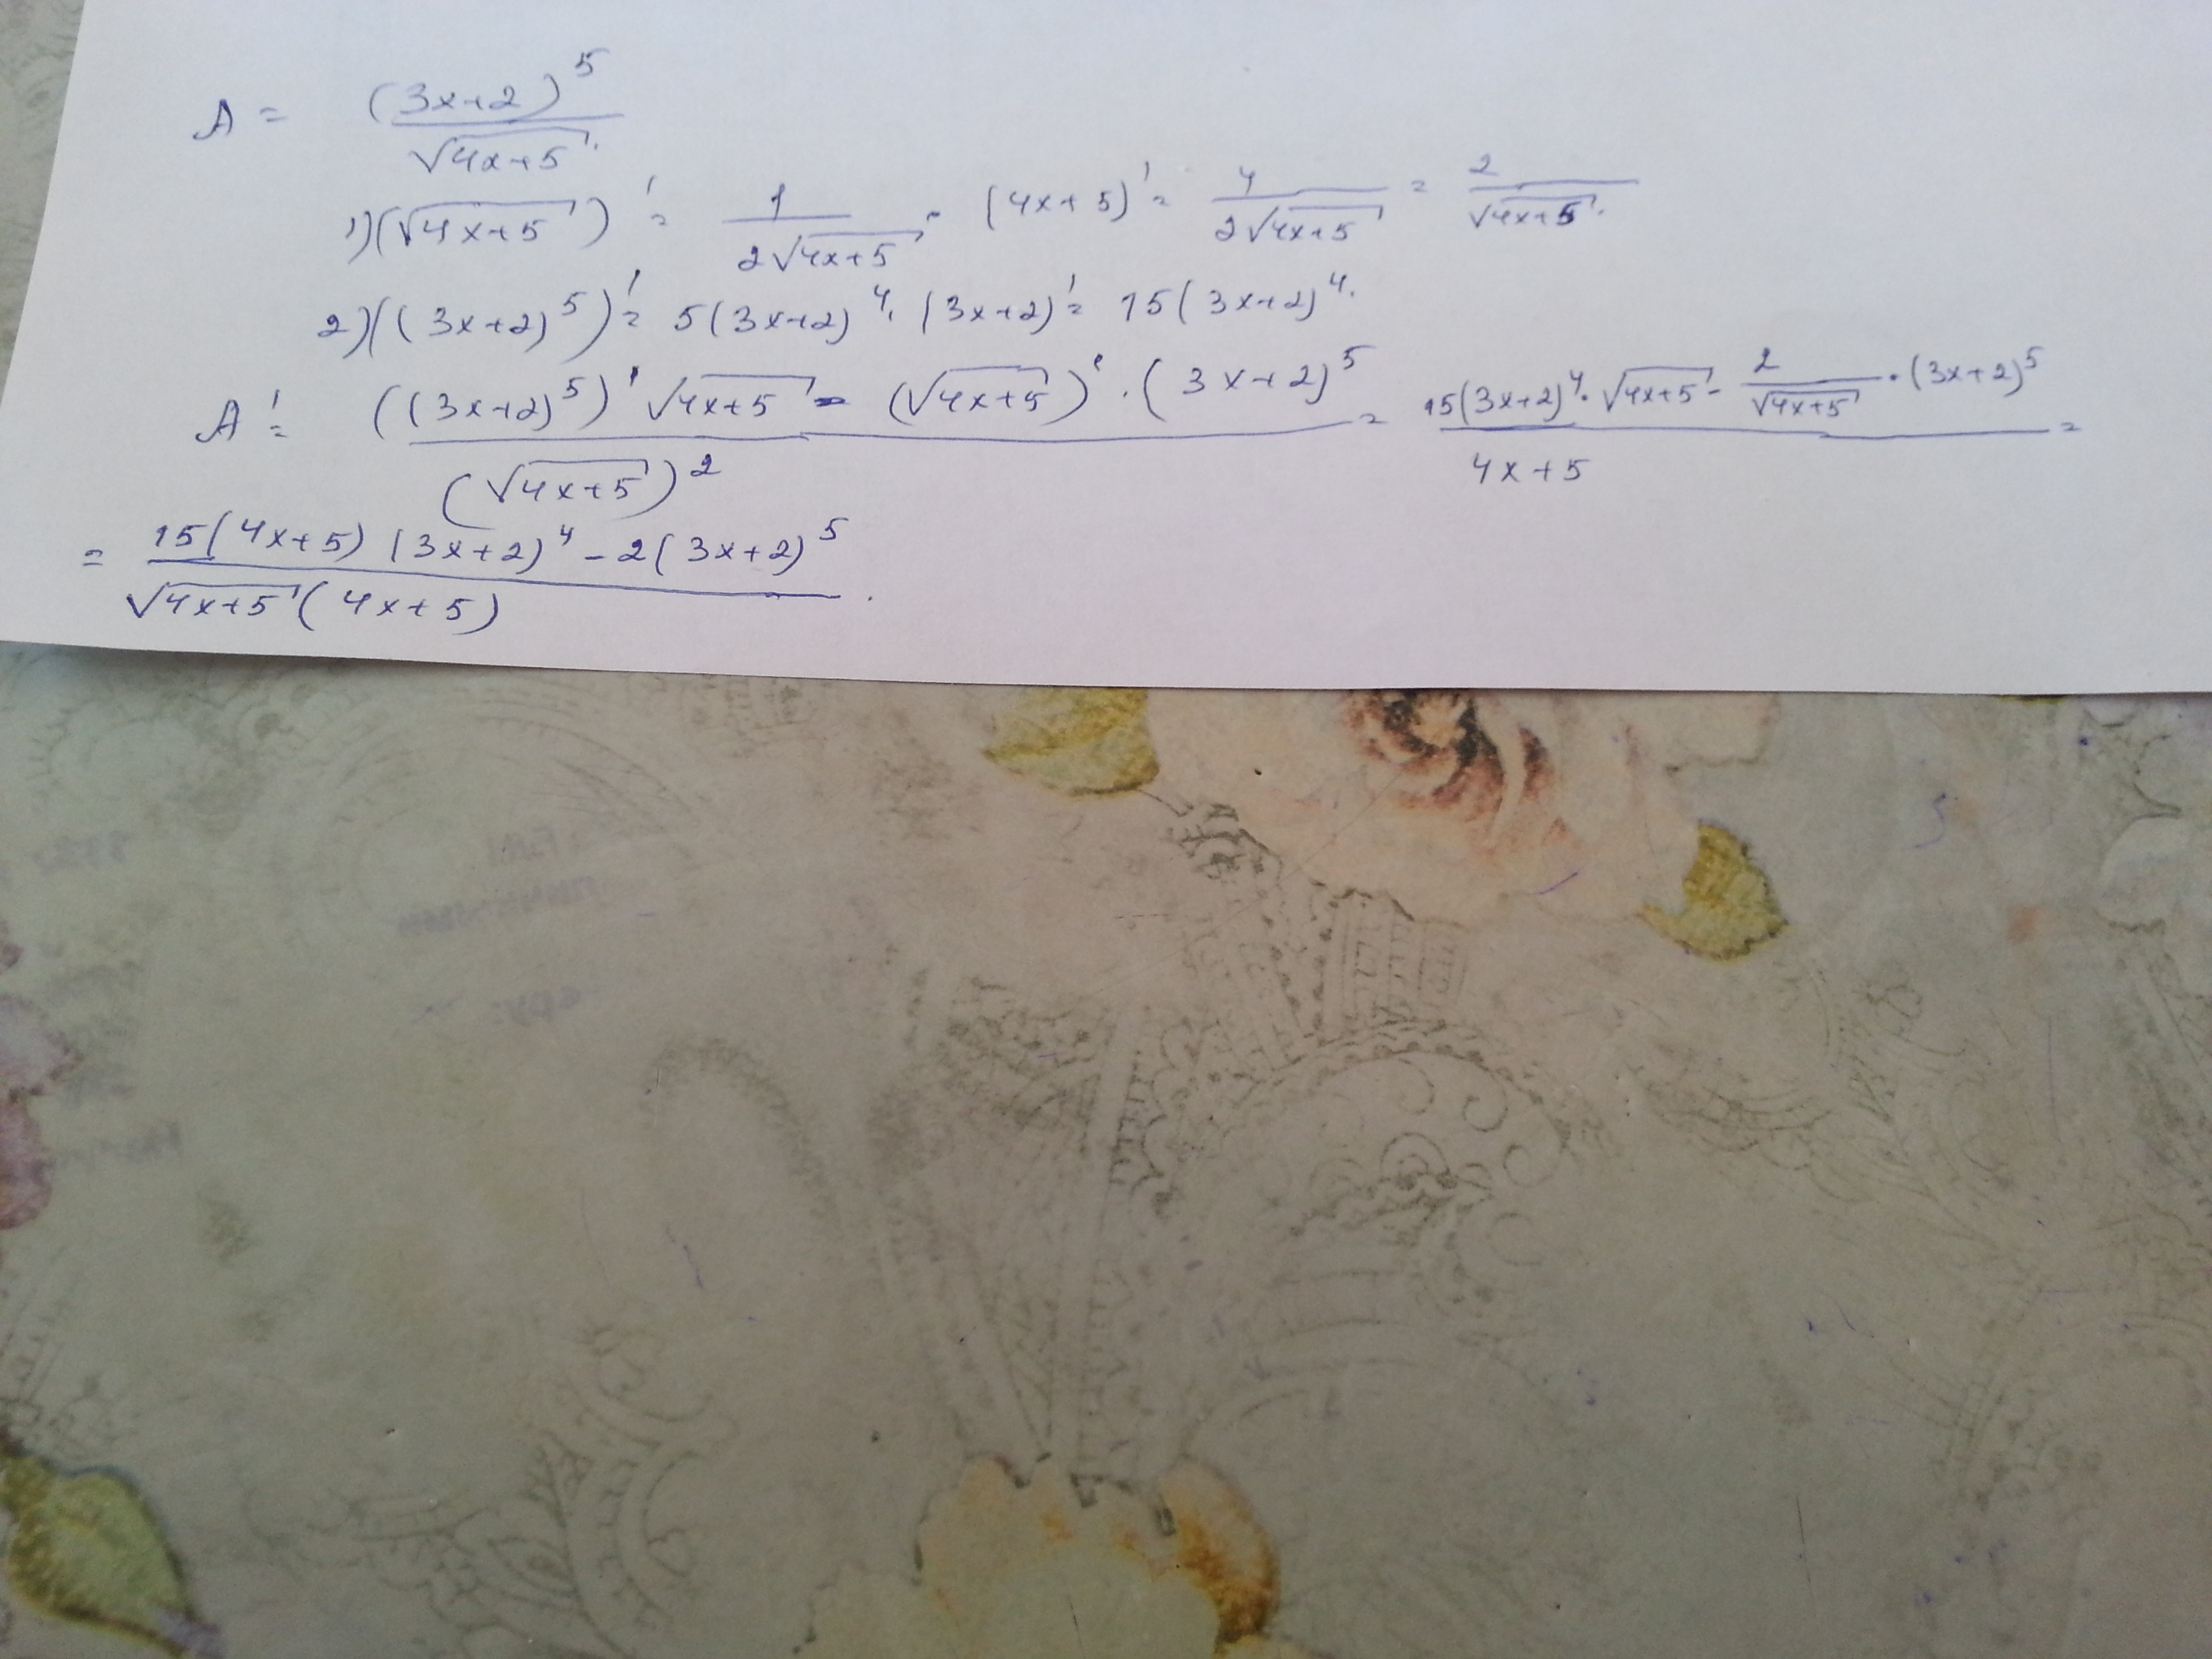 A = (3x+2)^5 / √(4x+5).
1) (√(4x+5))' = 1 / (2√(4x+5)) · (4x+5)' = 4 / (2√(4x+5)) = 2 / √(4x+5).
2) ((3x+2)^5)' = 5(3x+2)^4 · (3x+2)' = 15(3x+2)^4.
A' = (((3x+2)^5)' √(4x+5) - (√(4x+5))' · (3x+2)^5) / (√(4x+5))^2 = (15(3x+2)^4 · √(4x+5) - 2/√(4x+5) · (3x+2)^5) / (4x+5) =
= (15(4x+5)(3x+2)^4 - 2(3x+2)^5) / (√(4x+5)(4x+5)).